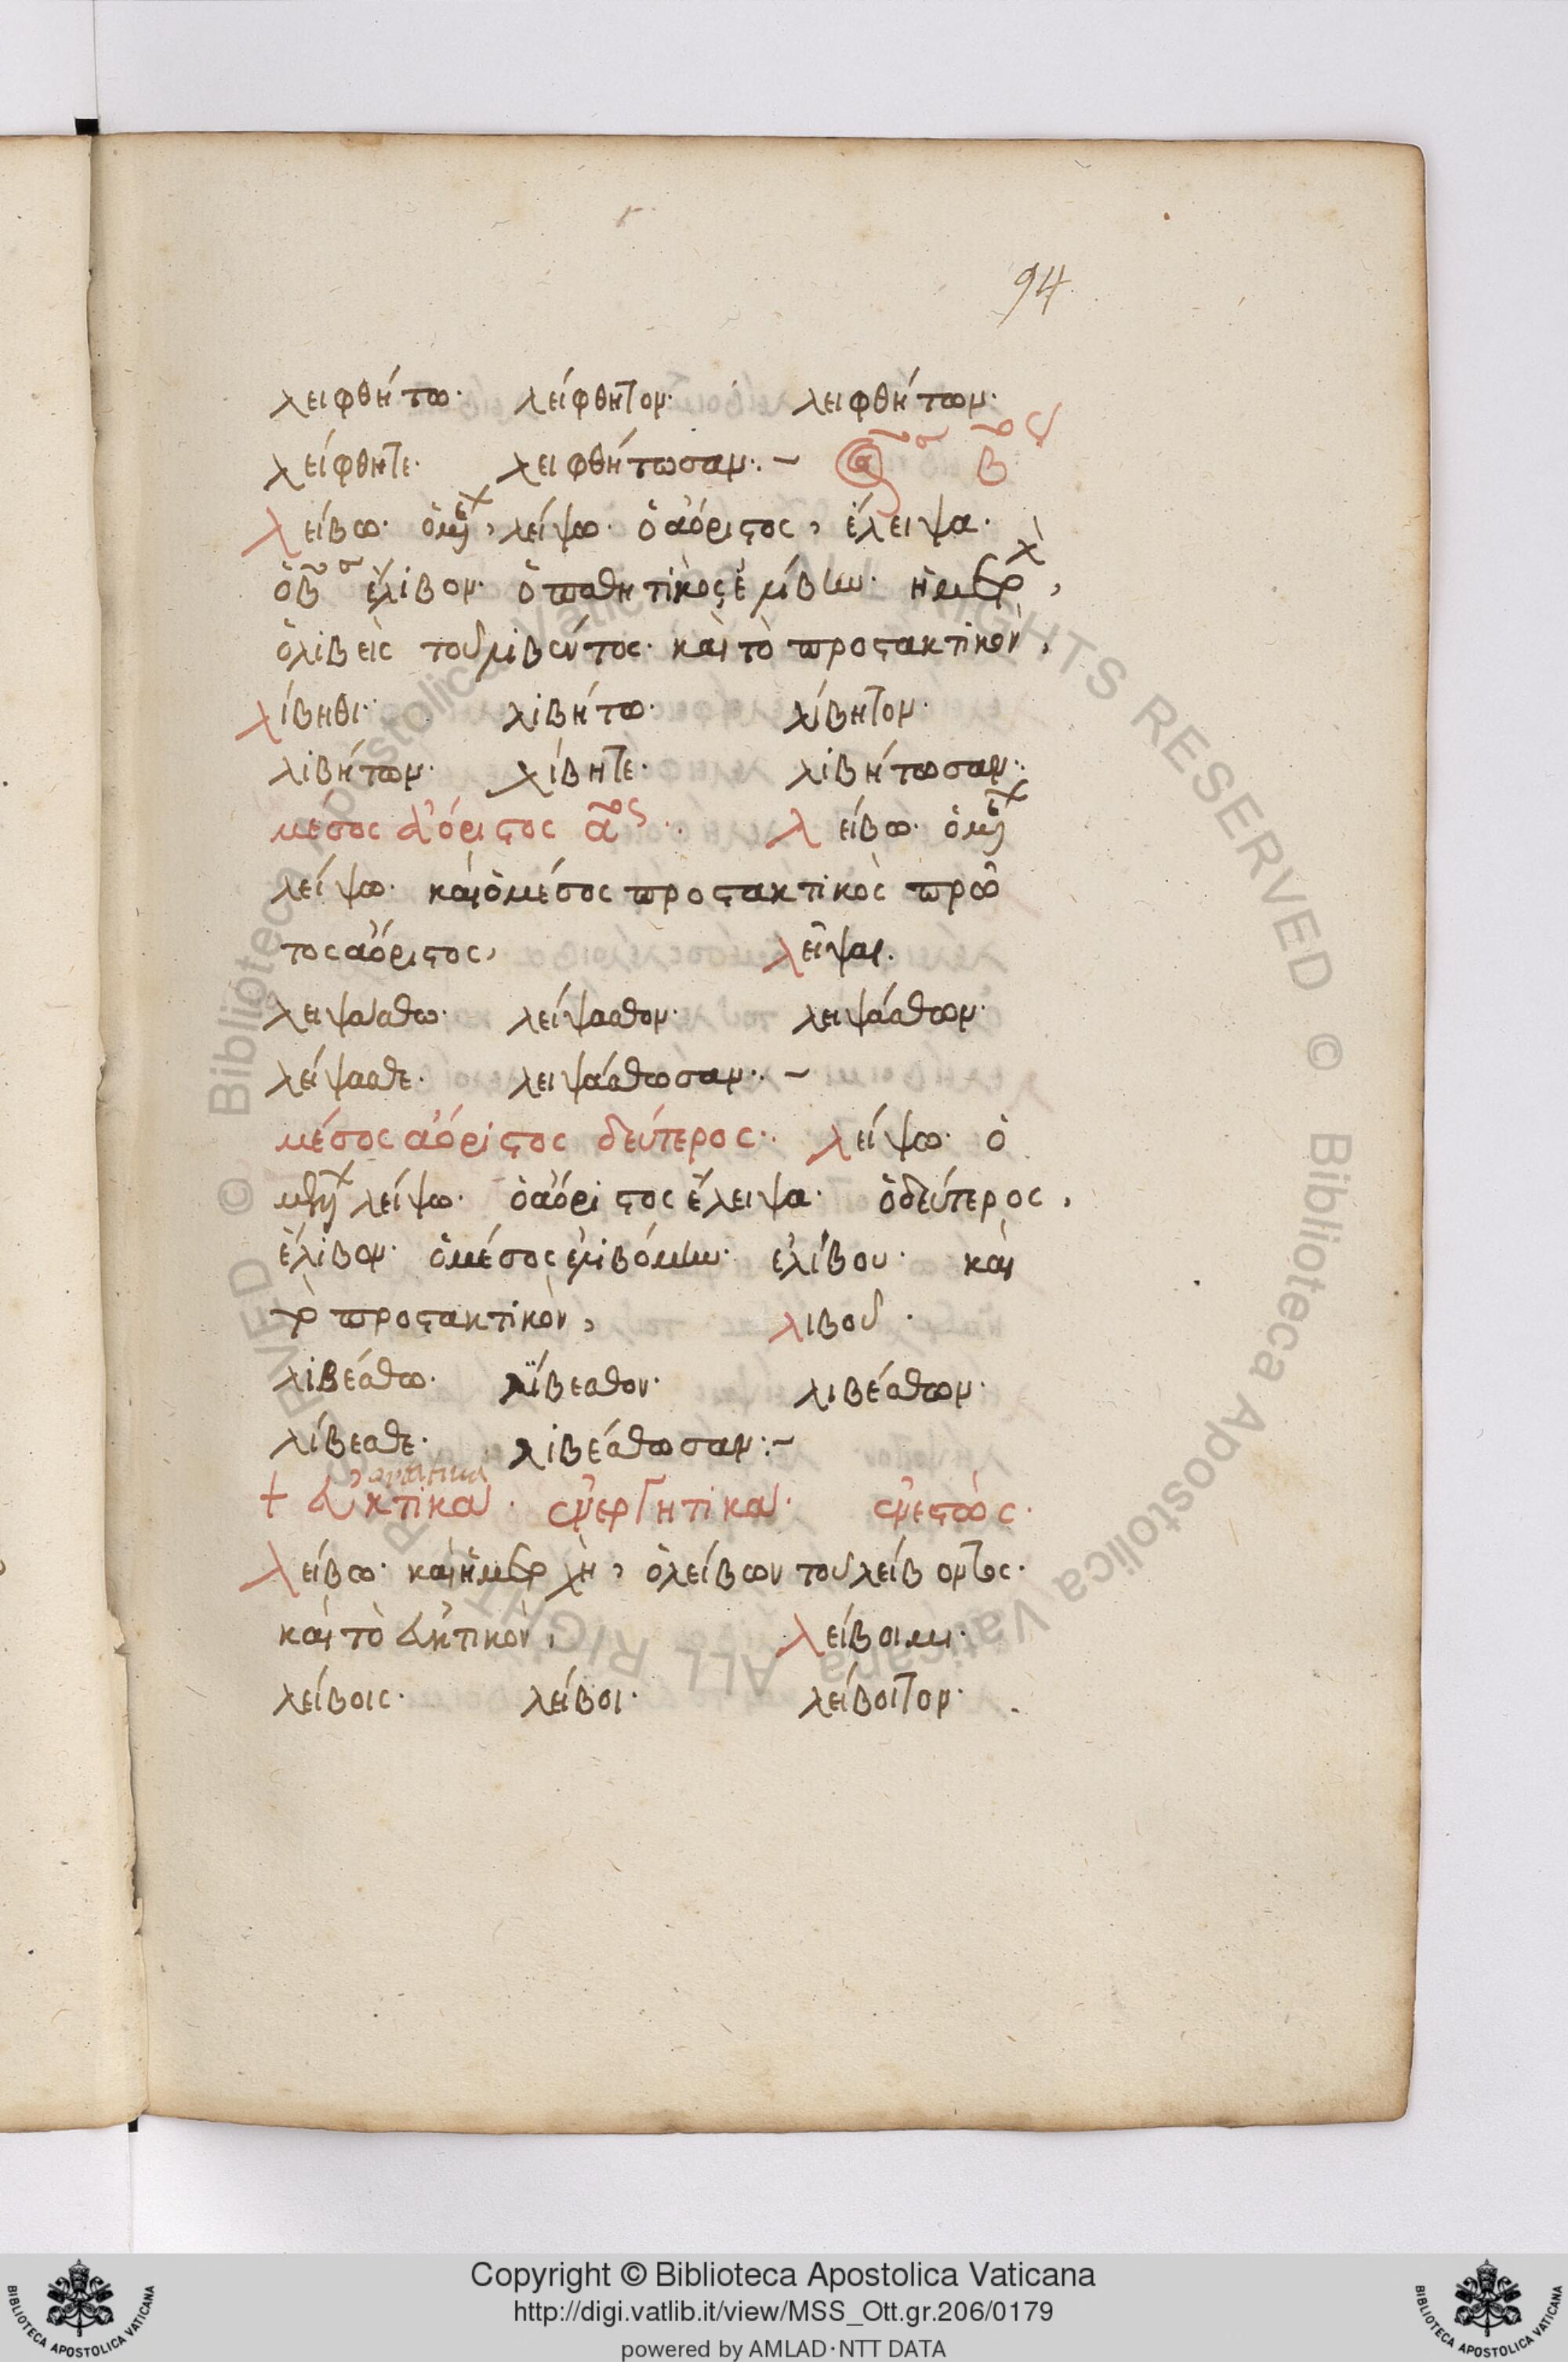 94
λειφθήτω· λείφθητον· λειφθήτων·
λείφθητε· λειφθήτωσαν·– β
λείβω· ὁ μέλ, λείψω· ὁ ἀόριστος, ἔλειψα·
ὁ β ἔλιβον· ὁ παθητικὸς ἐλίβην· ἡ μετοχὴ,
ὁ λιβεὶς τοῦ λιβέντος· καὶ τὸ προστακτικὸν,
λίβηθι· λιβήτω· λίβητον·
λιβήτων· λίβητε· λιβήτωσαν·
μέσος ἀόριστος α λείβω· ὁ μέλ
λείψω· καὶ ὁ μέσος προστακτικὸς πρῶ
τος ἀόριστος, λεῖψαι.
λειψάσθω· λείψασθον· λειψάσθων·
λείψασθε· λειψάσθωσαν·–
μέσος ἀόριστος δεύτερος· λείψω· ὁ
μέλ λείψω· ὁ ἀόριστος ἔλειψα· ὁ δεύτερος,
ἔλιβον· ὁ μέσος ἐλιβόμην· ἐλίβου· καὶ
τὸ προστακτικὸν, λιβοῦ·
λιβέσθω· λίβεσθον· λιβέσθων·
λίβεσθε· λιβέσθωσαν:–
+ εὐκτικὰ· ἐνεργητικὰ· ἐνεστὼς·
λείβω· καὶ ἡ μετοχὴ, ὁ λείβων τοῦ λείβοντος·
καὶ τὸ εὐκτικὸν, λείβοιμι·
λείβοις· λείβοι· λείβοιτον·
Copyright © Biblioteca Apostolica Vaticana
http://digi.vatlib.it/view/MSS_Ott.gr.206/0179
powered by AMLAD·NTT DATA
BIBLIOTECA APOSTOLICA VATICANA
BIBLIOTECA APOSTOLICA VATICANA
© Biblioteca Apostolica Vaticana ALL RIGHTS RESERVED © Biblioteca Apostolica Vaticana ALL RIGHTS RESERVED